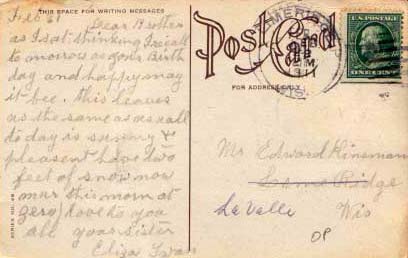 THIS SPACE FOR WRITING MESSAGES
Feb 6
Dear Brother
as I sat thinking I recall
to morrow as yours Birth
day and happy may
it bee. this leaves
us the same as as all
to day is sunny &
pleasent have two
feet of snow now
mur this morn at
zero) love to you
all your sister
Eliza
Post Card
FOR ADDRESS ONLY
AMERI
1911
WIS.
U.S. POSTAGE
ONE CENT
SERIES NO.
Mr Edward Kinsman
Lime Ridge
La Valle Wis